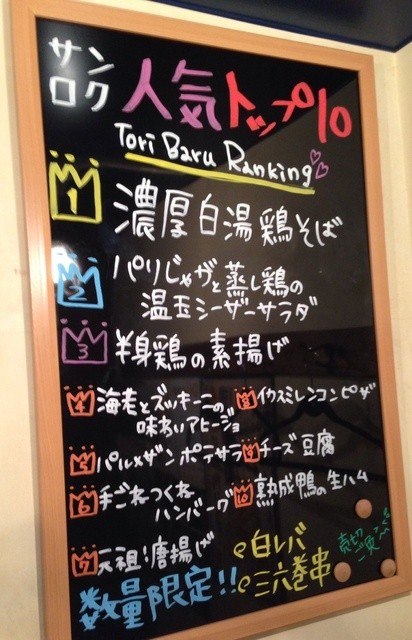 サンロク 人気トップ10
Tori Baru Ranking
1 濃厚白湯鶏そば
2 パリじゃがと蒸し鶏の
温玉シーザーサラダ
3 半身鶏の素揚げ
4 海老とズッキーニの
味わいアヒージョ
5 パルメザンポテサラ
6 手ごねつくね
ハンバーグ
7 元祖！唐揚げ
8 イカスミレンコンピザ
9 チーズ豆腐
10 熟成鴨の生ハム
数量限定!!
白レバ
三六巻串
売切